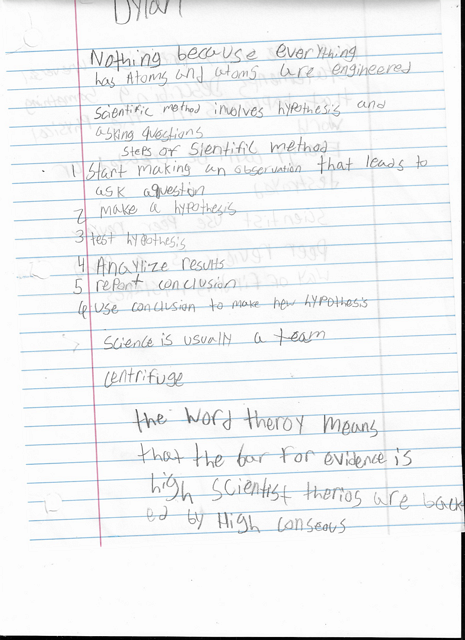 Dylan
Nothing because everything
has Atoms and atoms are engineered
Scientific method involves hypothesis and
asking questions
steps of Sientific method
1 Start making an observation that leads to
ask a question
2 make a hypothesis
3 test hypothesis
4 Anaylize results
5 report conclusion
6 use conclusion to make new hypothesis
Science is usually a team
centrifuge
the word theroy means
that the bar for evidence is
high scientist therios are back
ed by High conseous